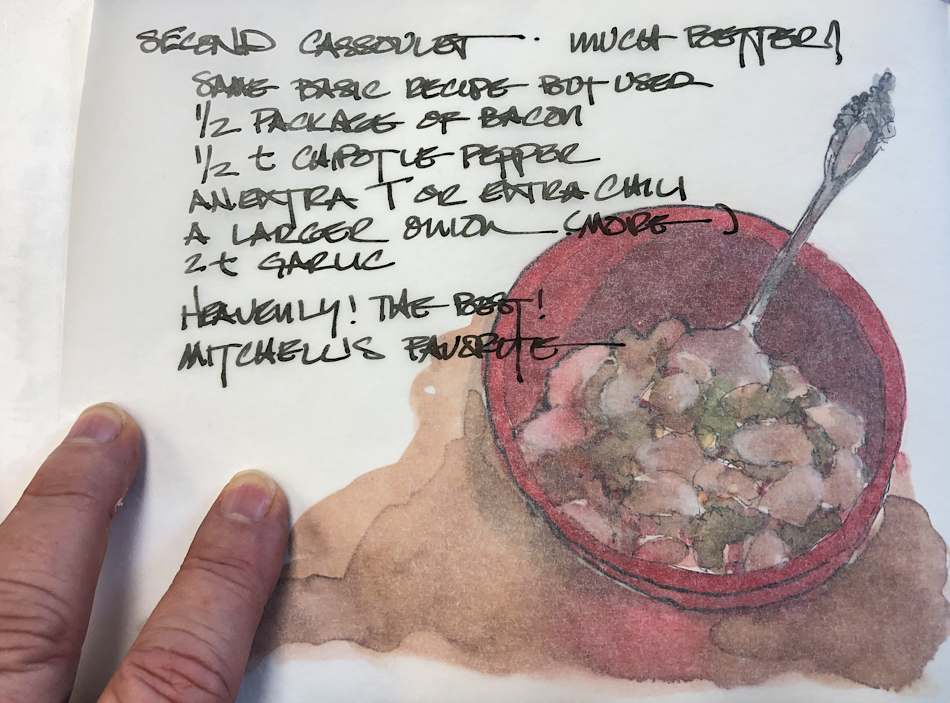 SECOND CASSOULET — . MUCH BETTER!
SAME BASIC RECIPE BUT USED
1/2 PACKAGE OF BACON
1/2 t CHIPOTLE PEPPER
AN EXTRA T OR EXTRA CHILI
A LARGER ONION (MORE)
2 t GARLIC
HEAVENLY! THE BEST!
MITCHELL'S FAVORITE